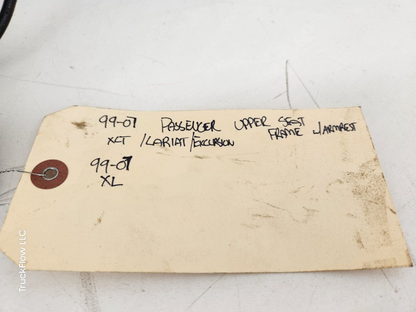 99-07 PASSENGER UPPER SEAT
FRAME w/ARMREST
XLT /LARIAT/EXCURSION
99-07
XL
TruckFlow LLC